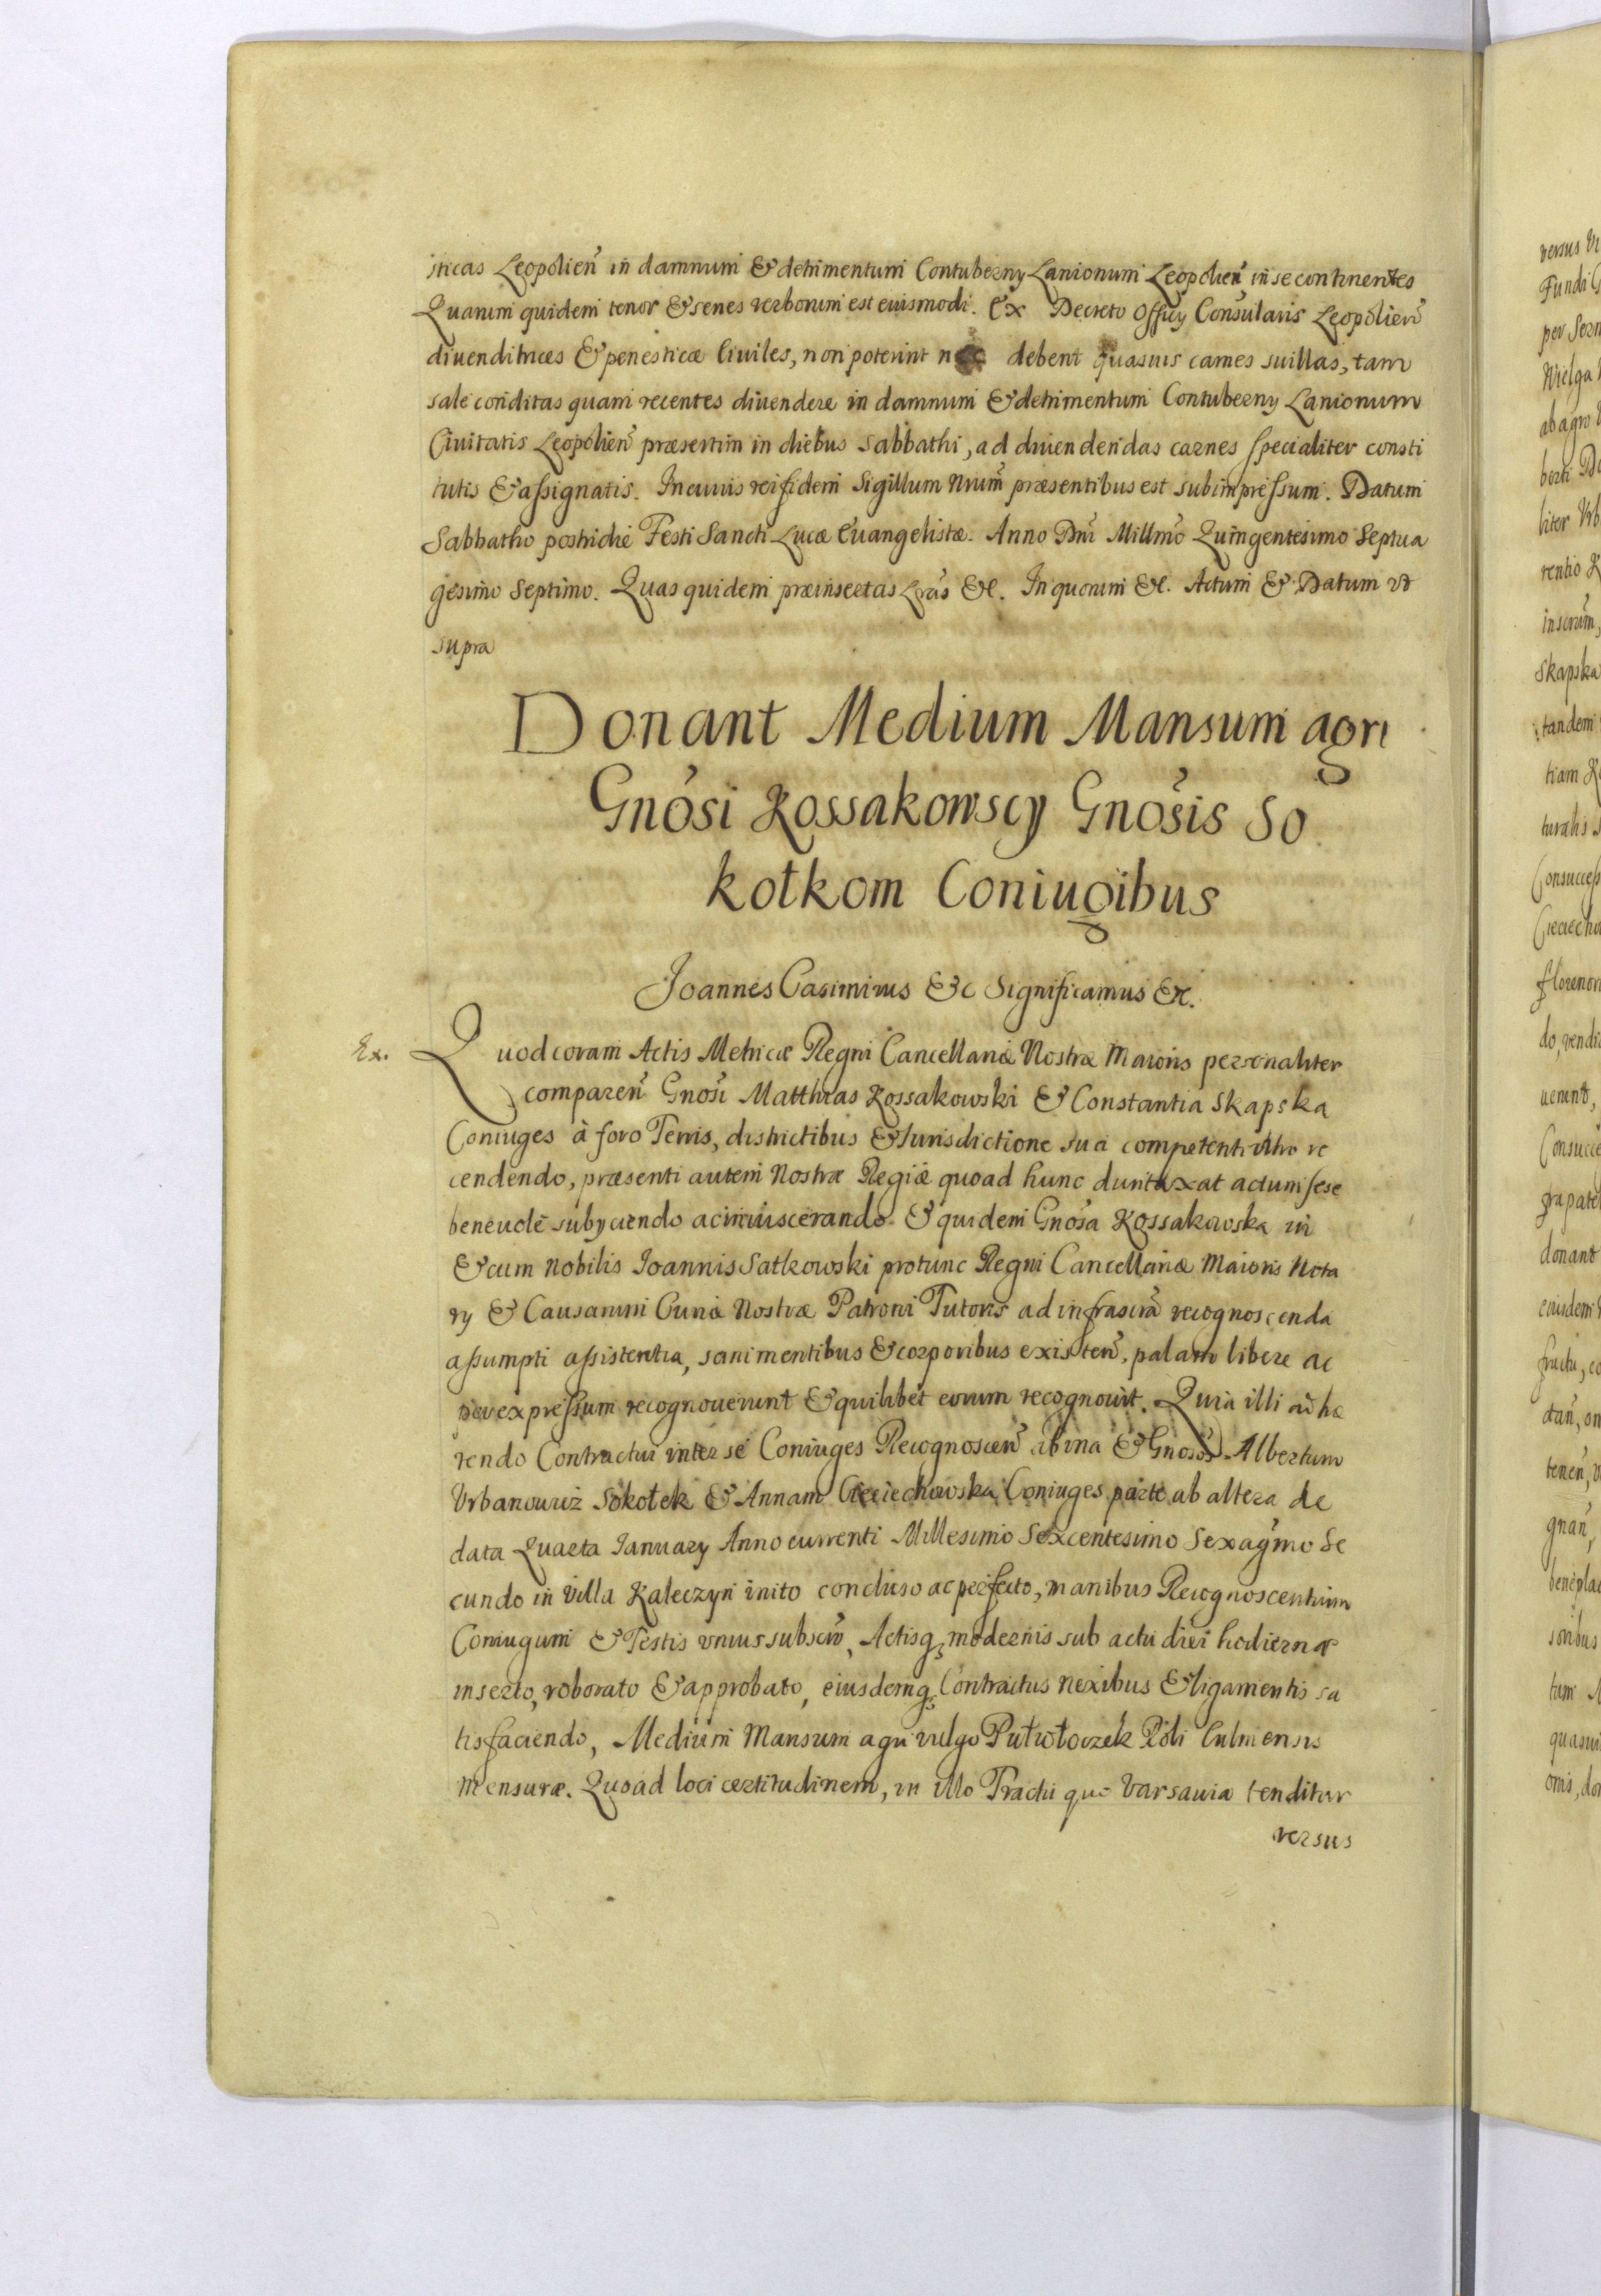 sticas Leopolien̄ in damnum & detrimentum Contuberny Lanionum Leopolien̄ in se continentes
Quarum quidem tenor & series verborum est euismodi. Ex Decreto Officy Consularis Leopolien̄
diuenditrices & penesticæ Ciuiles, non poterint nec debent quasuis carnes suillas, tam
sale conditas quam recentes diuendere in damnum & detrimentum Contuberny Lanionum
Ciuitatis Leopolien̄ præsertim in diebus Sabbathi, ad diuendendas carnes specialiter consti
tutis & assignatis. In cuius rei fidem Sigillum Nrum̄ præsentibus est subimpressum. Datum
Sabbatho postridie Festi Sancti Lucæ Euangelistæ. Anno Dni Millmo Quingentesimo Septua
gesimo Septimo. Quas quidem præinsertas Lrās &c. In quorum &c. Actum & Datum vt
supra
Donant Medium Mansum agri
Gnosi Kossakowscy Gnosis So
kołkom Coniugibus
Joannes Casimirus &c Significamus &c.
Ex. Quod coram Actis Metricæ Regni Cancellariæ Nostræ Maioris personaliter
comparen̄ Gnosi Matthias Kossakowski & Constantia Skapska
Coniuges à foro Terris, districtibus & Iurisdictione sua competenti vltro re
cendendo, præsenti autem Nostræ Regiæ quoad hunc duntaxat actum sese
beneuolè subyciendo ac inuiscerando. & quidem Gnosa Kossakowska in
& cum Nobilis Joannis Satkowski protunc Regni Cancellariæ Maioris Nota
ry & Causarum Curiæ Nostræ Patroni Tutoris ad infrascrā recognoscenda
assumpti assistentia, sani mentibus & corporibus existen̄, palam libere ac
per expressum recognouerunt & quilibet eorum recognouit. Quia illi adhæ
rendo Contractui inter se Coniuges Recognoscen̄ ab vna & Gnosos Albertum
Vrbanowicz Sokołek & Annam Cieciechowska Coniuges parte ab altera de
data Quarta January Anno currenti Millesimo Sexcentesimo Sexagmo Se
cundo in Villa Kaleczyn inito concluso ac perfecto, manibus Recognoscentium
Coniugum & Testis vnius subscr̄, Actisq; modernis sub actu diei hodiernæ
inserto, roborato & approbato, eiusdemq; Contractus nexibus & ligamentis sa
tisfaciendo, Medium Mansum agri vulgo Pułwłoczek Roli Culmensis
mensuræ. Quoad loci certitudinem, in illo Tractu quo Varsauia tenditur
versus